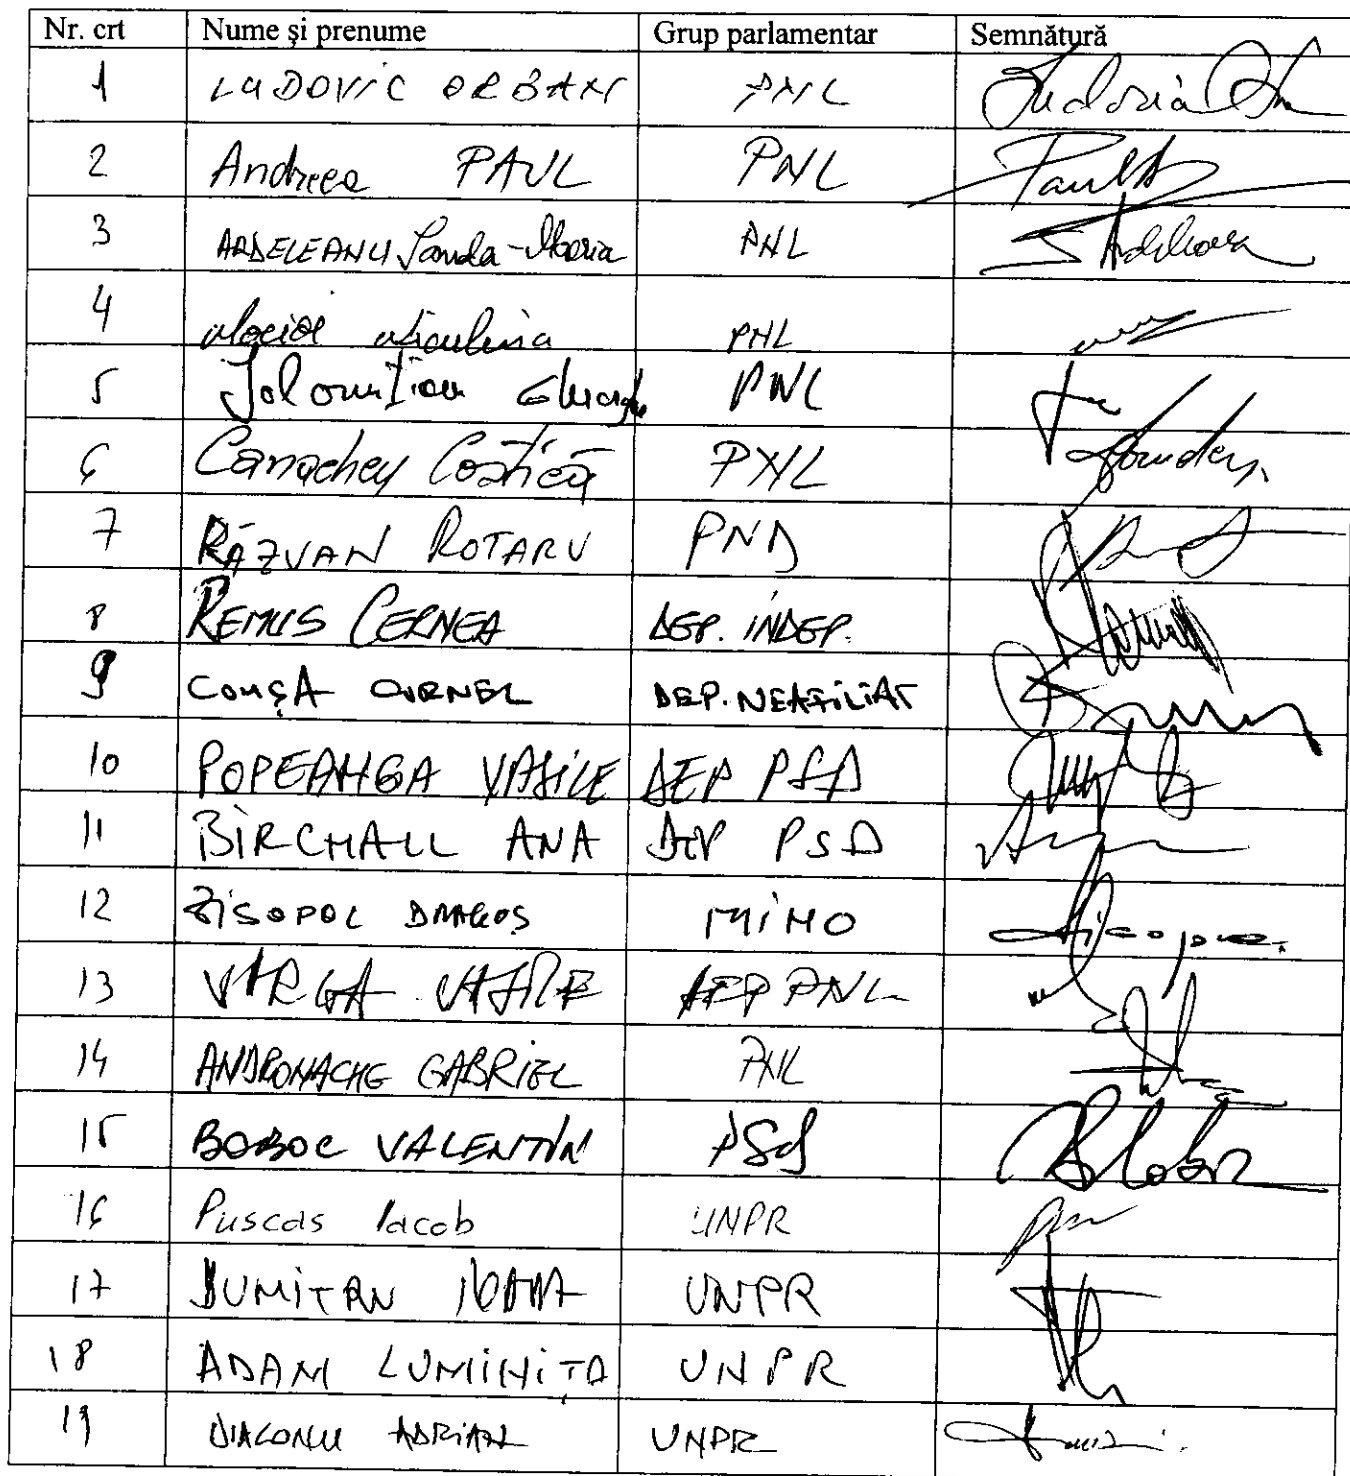 Nr. crt Nume și prenume Grup parlamentar Semnătură
1 LUDOVIC ORBAN PNL
2 Andreea PAUL PNL Paul A
3 ARDELEANU Sanda-Maria PNL S Ardeleanu
4 PNL
5 Ialomițianu Gheorghe PNL
6 Canacheu Costică PNL
7 RĂZVAN ROTARU PSD
8 REMUS CERNEA DEP. INDEP.
9 COMȘA CORNEL DEP. NEAFILIAT
10 POPEANGA VASILE DEP PSD
11 BIRCHALL ANA DEP PSD
12 ZISOPOL DRAGOȘ MINO
13 VARGA VASILE DEP PNL
14 ANDRONACHE GABRIEL PNL
15 BOBOC VALENTIN PSD
16 Puscas Iacob UNPR
17 DUMITRU IOANA UNPR
18 ADAM LUMINIȚA UNPR
19 DIACONU ADRIAN UNPR